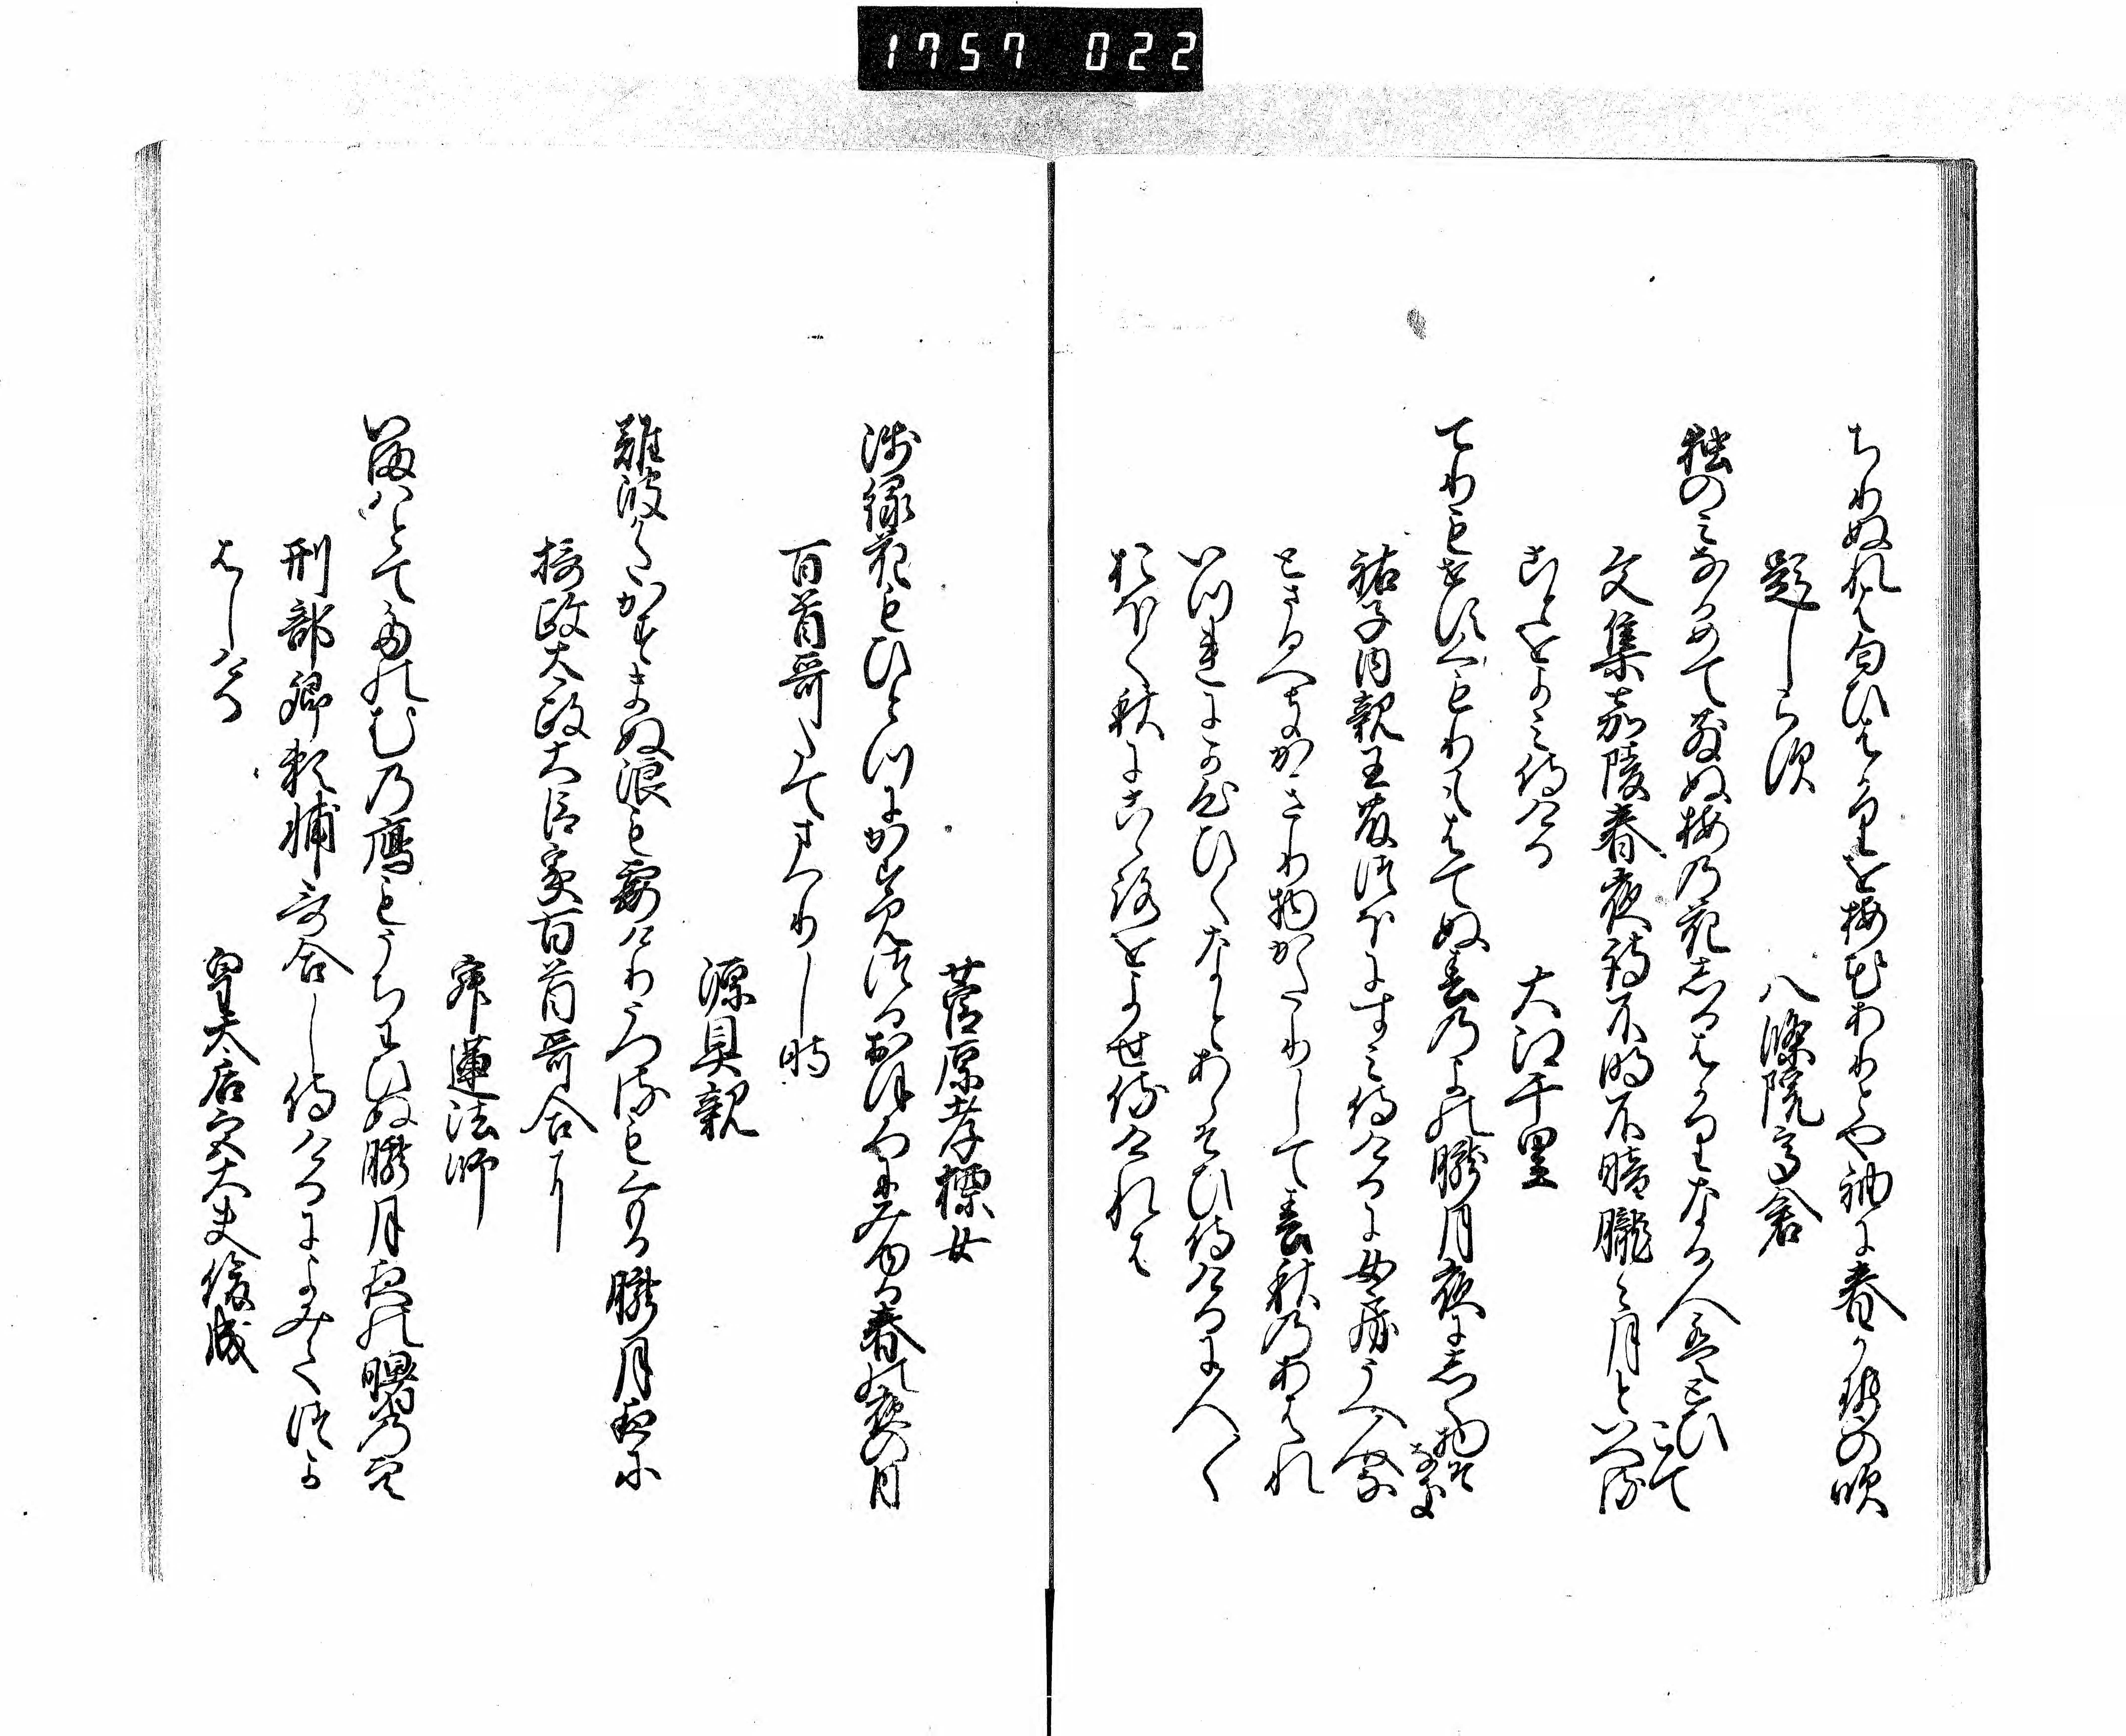 1757 022
ちりぬれは匂ひはかりを梅花ありとや袖に春かせの吹
題しらす　八條院高倉
独のみなかめてちりぬ梅の花しるはかりなる人はとひこて
文集嘉陵春夜詩不明不暗朧々月といへる
ことをよみ侍ける　大江千里
てりもせすくもりもはてぬ春のよの朧月夜にしく物そなき
祐子内親王藤つほにすみ侍けるに女房うへ人なと
さるへきかきり物かたりして春秋のあはれ
いつれにか心ひくなとあらそひ侍けるに人々
おほく秋に心をよせ侍けれは
菅原孝標女
浅緑花もひとつにかすみつつおほろにみゆる春の夜の月
百首哥たてまつりし時
源具親
難波かたかすまぬ浪も霞けりうつるもくもる朧月夜に
摂政太政大臣家百首哥合に
寂蓮法師
今はとてたのむの鴈もうちわひぬ朧月夜の曙の空
刑部卿頼輔哥合し侍けるによみてつか
はしける
皇太后宮大夫俊成